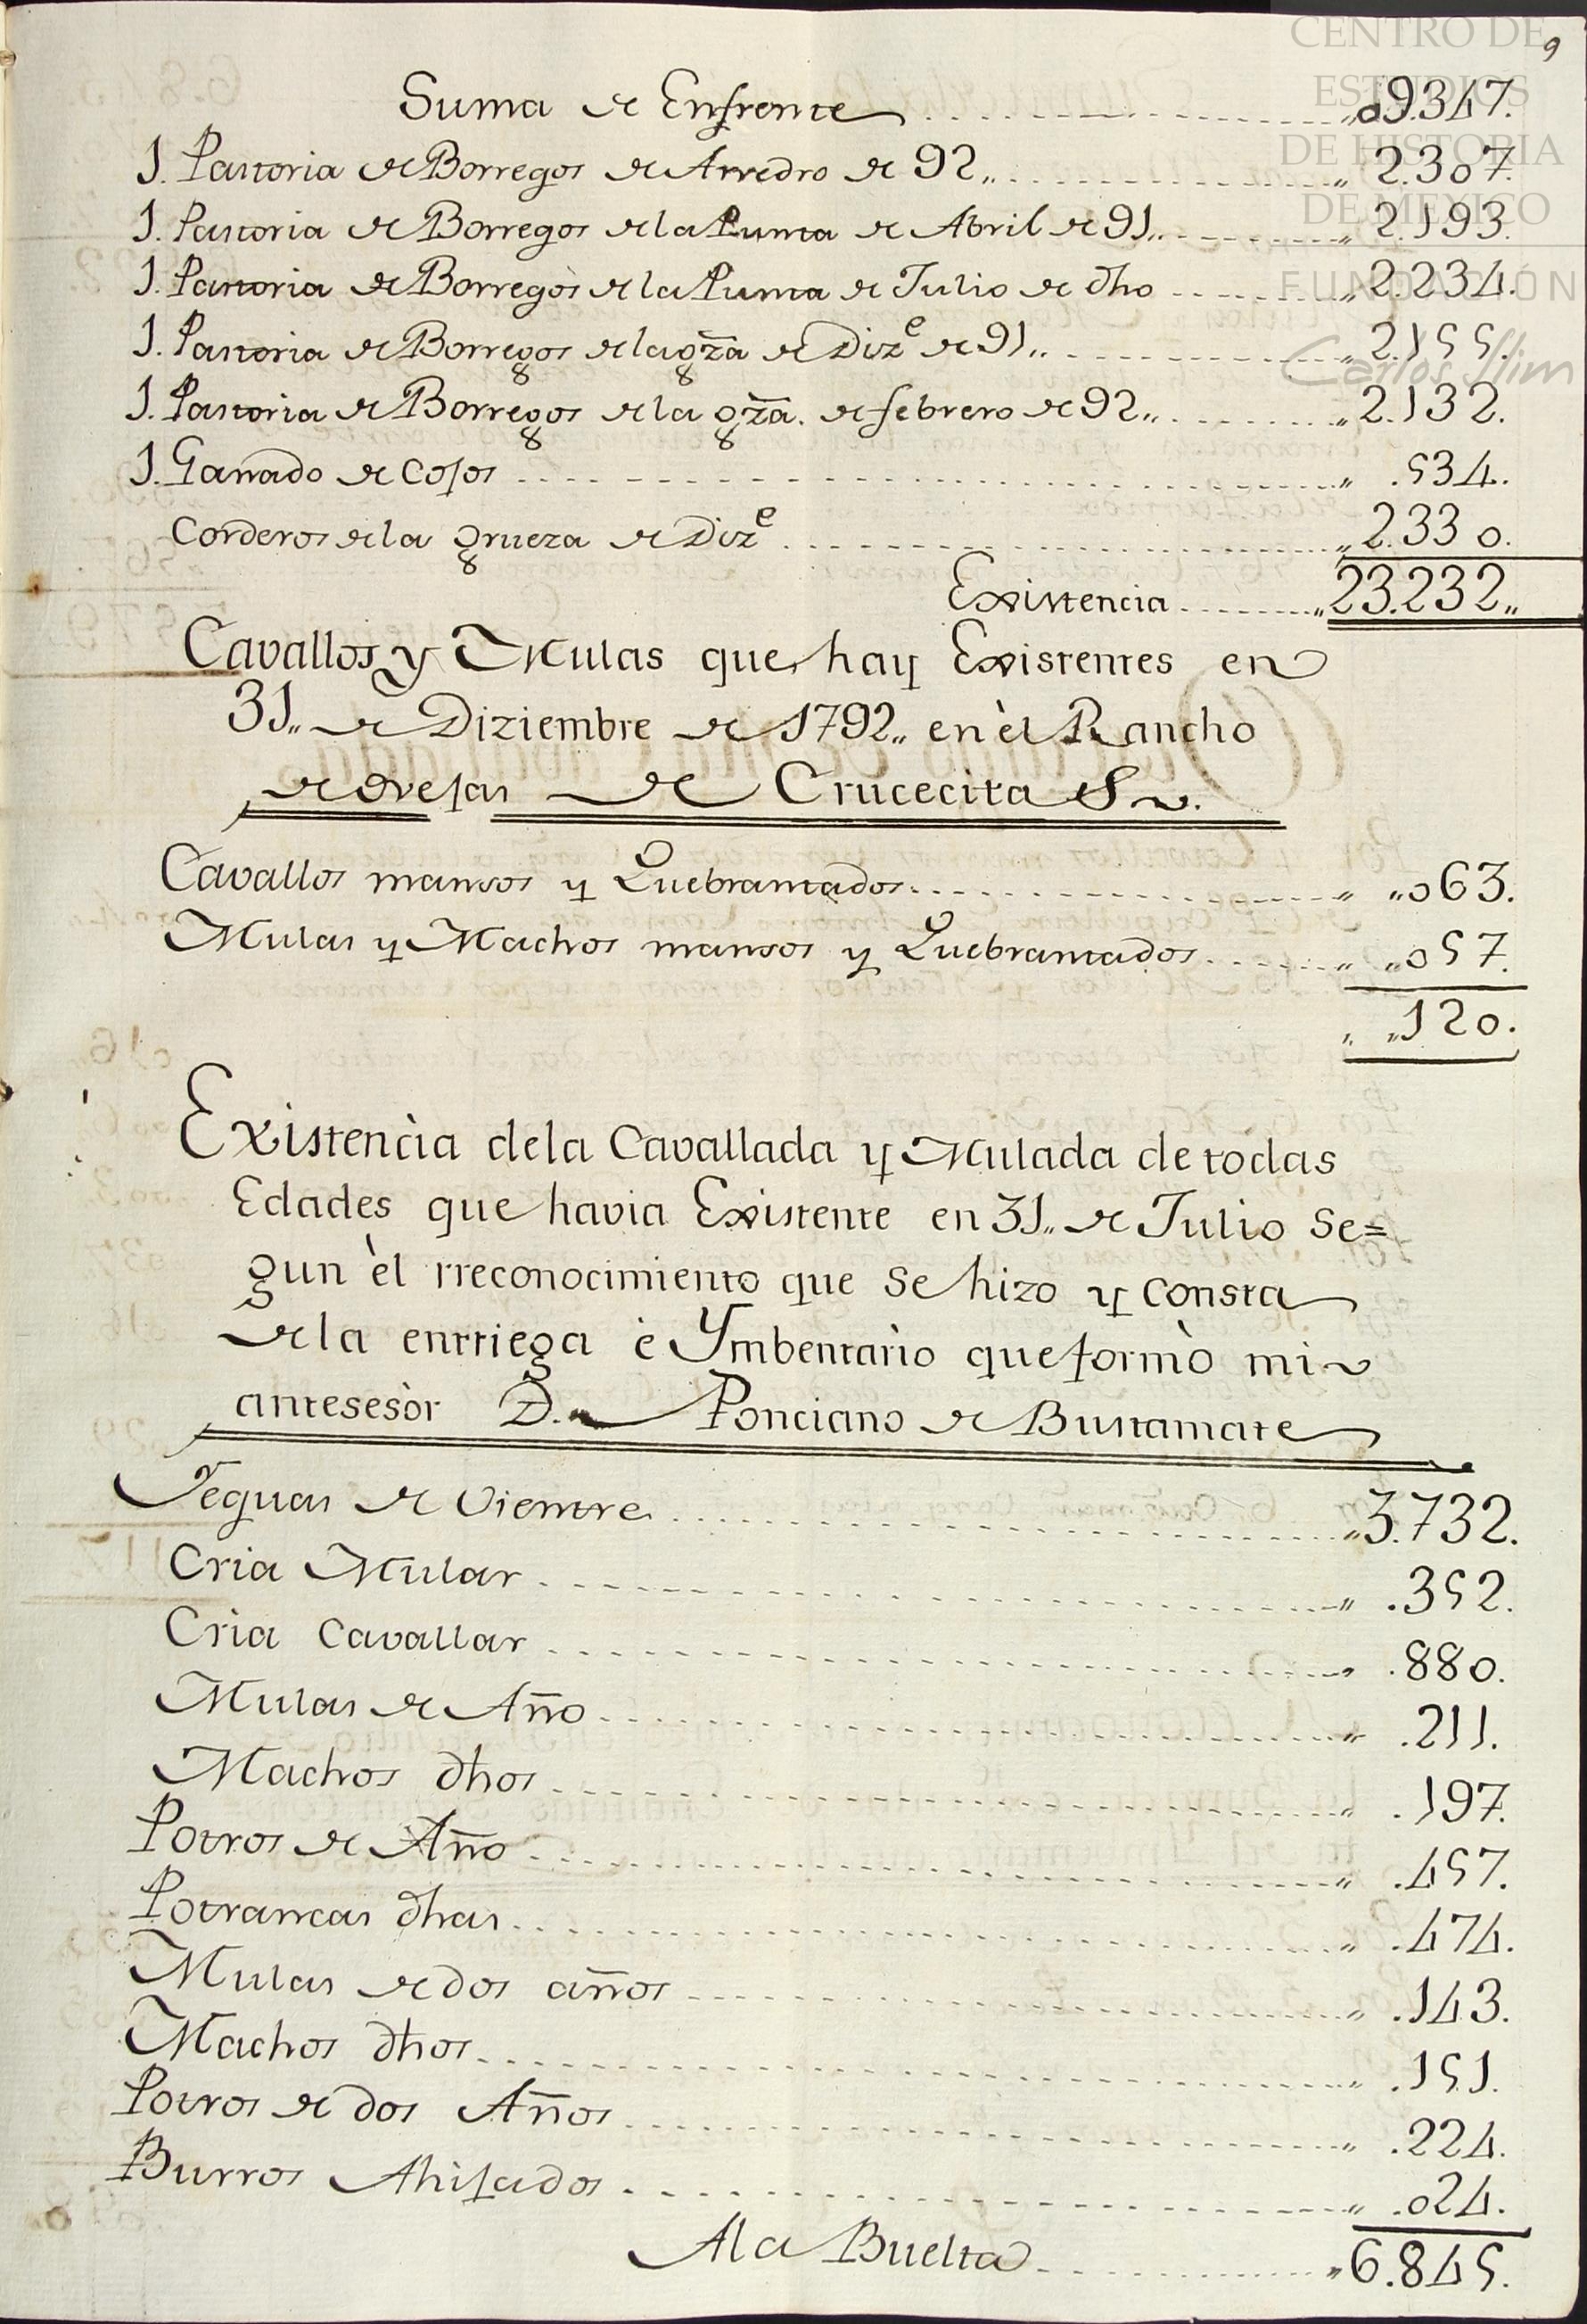 CENTRO DE
ESTUDIOS
DE HISTORIA
DE MEXICO
FUNDACIÓN
Carlos Slim
9
Suma de Enfrente ,,o9.347.
1. Pastoria de Borregos de Arredro de 92,, ,, 2.307.
1. Pastoria de Borregos de la Punta de Abril de 91,, ,, 2.193.
1. Pastoria de Borregos de la Punta de Julio de dho ,, 2.234.
1. Pastoria de Borregos de la gza de Dize de 91,, ,, 2.155.
1. Pastoria de Borregos de la gza. de febrero de 92,, ,, 2.132.
1. Ganado de Cojos ,, .534.
Corderos de la grueza de Dize ,, 2.330.
Existencia ,,23.232,,
Cavallos y Mulas que hay Existentes en
31,, de Diziembre de 1792,, en èl Rancho
de ovejas de Crucecita &.
Cavallos mansos y Quebrantados ,, ,,o63.
Mulas y Machos mansos y Quebrantados ,, ,,o57.
,, ,,120.
Existencia dela Cavallada y Mulada de todas
Edades que havia Existente en 31,, de Julio Se=
gun èl rreconocimiento que Se hizo y consta
de la entriega è Ymbentario que formò mi
antesesòr D.n Ponciano de Bustamate
Yeguas de Vientre ,,3.732.
Cria Mular ,, .352.
Cria Cavallar ,, .880.
Mulas de Año ,, .211.
Machos dhos ,, .197.
Potros de Año ,, .457.
Potrancas dhas ,, .474.
Mulas de dos años ,, .143.
Machos dhos ,, .151.
Potros de dos Años ,, .224.
Burros Ahijados ,, .o24.
Ala Buelta ,,6.845.